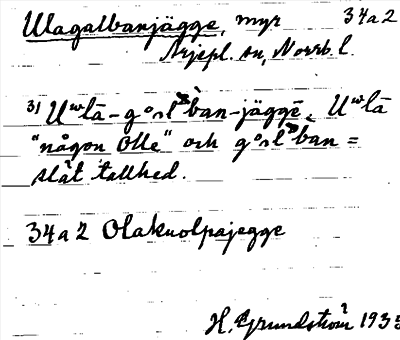 Ulagalbanjägge, myr 34a2
Arjepl. sn, Norrb. l.
31 Uʷlā-gºʌlᵇban-jäggē. Uʷlā
"någon Olle" och gºʌlᵇban =
slät tallhed.
34a2 Olakuolpajegge
H. Grundström 1935